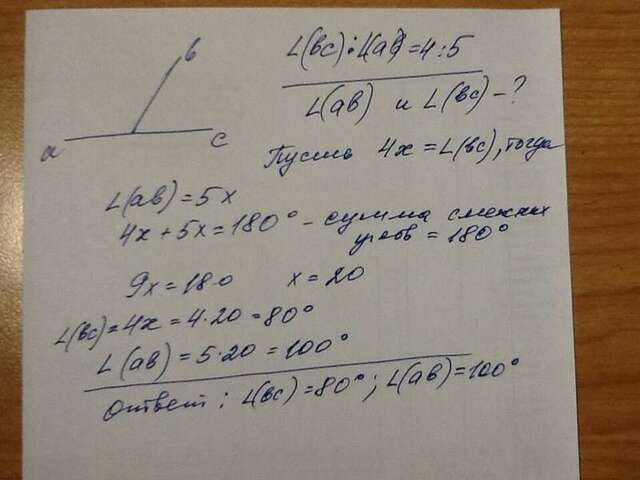 в
a
c
∠(вс):∠(ав)=4:5
∠(ав) и ∠(вс) - ?
Пусть 4x = ∠(вс), тогда
∠(ав) = 5x
4x + 5x = 180° - сумма смежных
углов = 180°
9x = 180 x = 20
∠(вс) = 4x = 4·20 = 80°
∠(ав) = 5·20 = 100°
Ответ: ∠(вс) = 80°; ∠(ав) = 100°